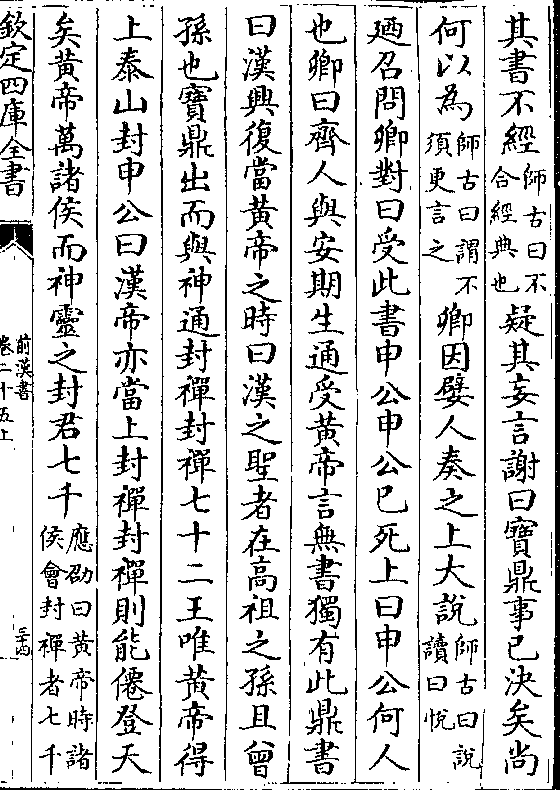 其書不經師古曰不合經典也疑其妄言謝曰寶鼎事已決矣尚
何以為師古曰謂不須更言之卿因嬖人奏之上大說師古曰說讀曰悅
廼召問卿對曰受此書申公申公已死上曰申公何人
也卿曰齊人與安期生通受黃帝言無書獨有此鼎書
曰漢興復當黃帝之時曰漢之聖者在高祖之孫且曾
孫也寶鼎出而與神通封禪封禪七十二王唯黃帝得
上泰山封申公曰漢帝亦當上封禪封禪則能僊登天
矣黃帝萬諸侯而神靈之封君七千應劭曰黃帝時諸侯會封禪者七千
欽定四庫全書
前漢書
卷二十五上
三十四